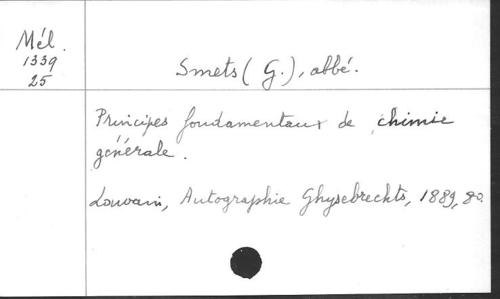 Mél.
1339
25
Smets (G.), abbé.
Principes fondamentaux de chimie
générale.
Louvain, Autographie Ghysebrechts, 1889, 8o.